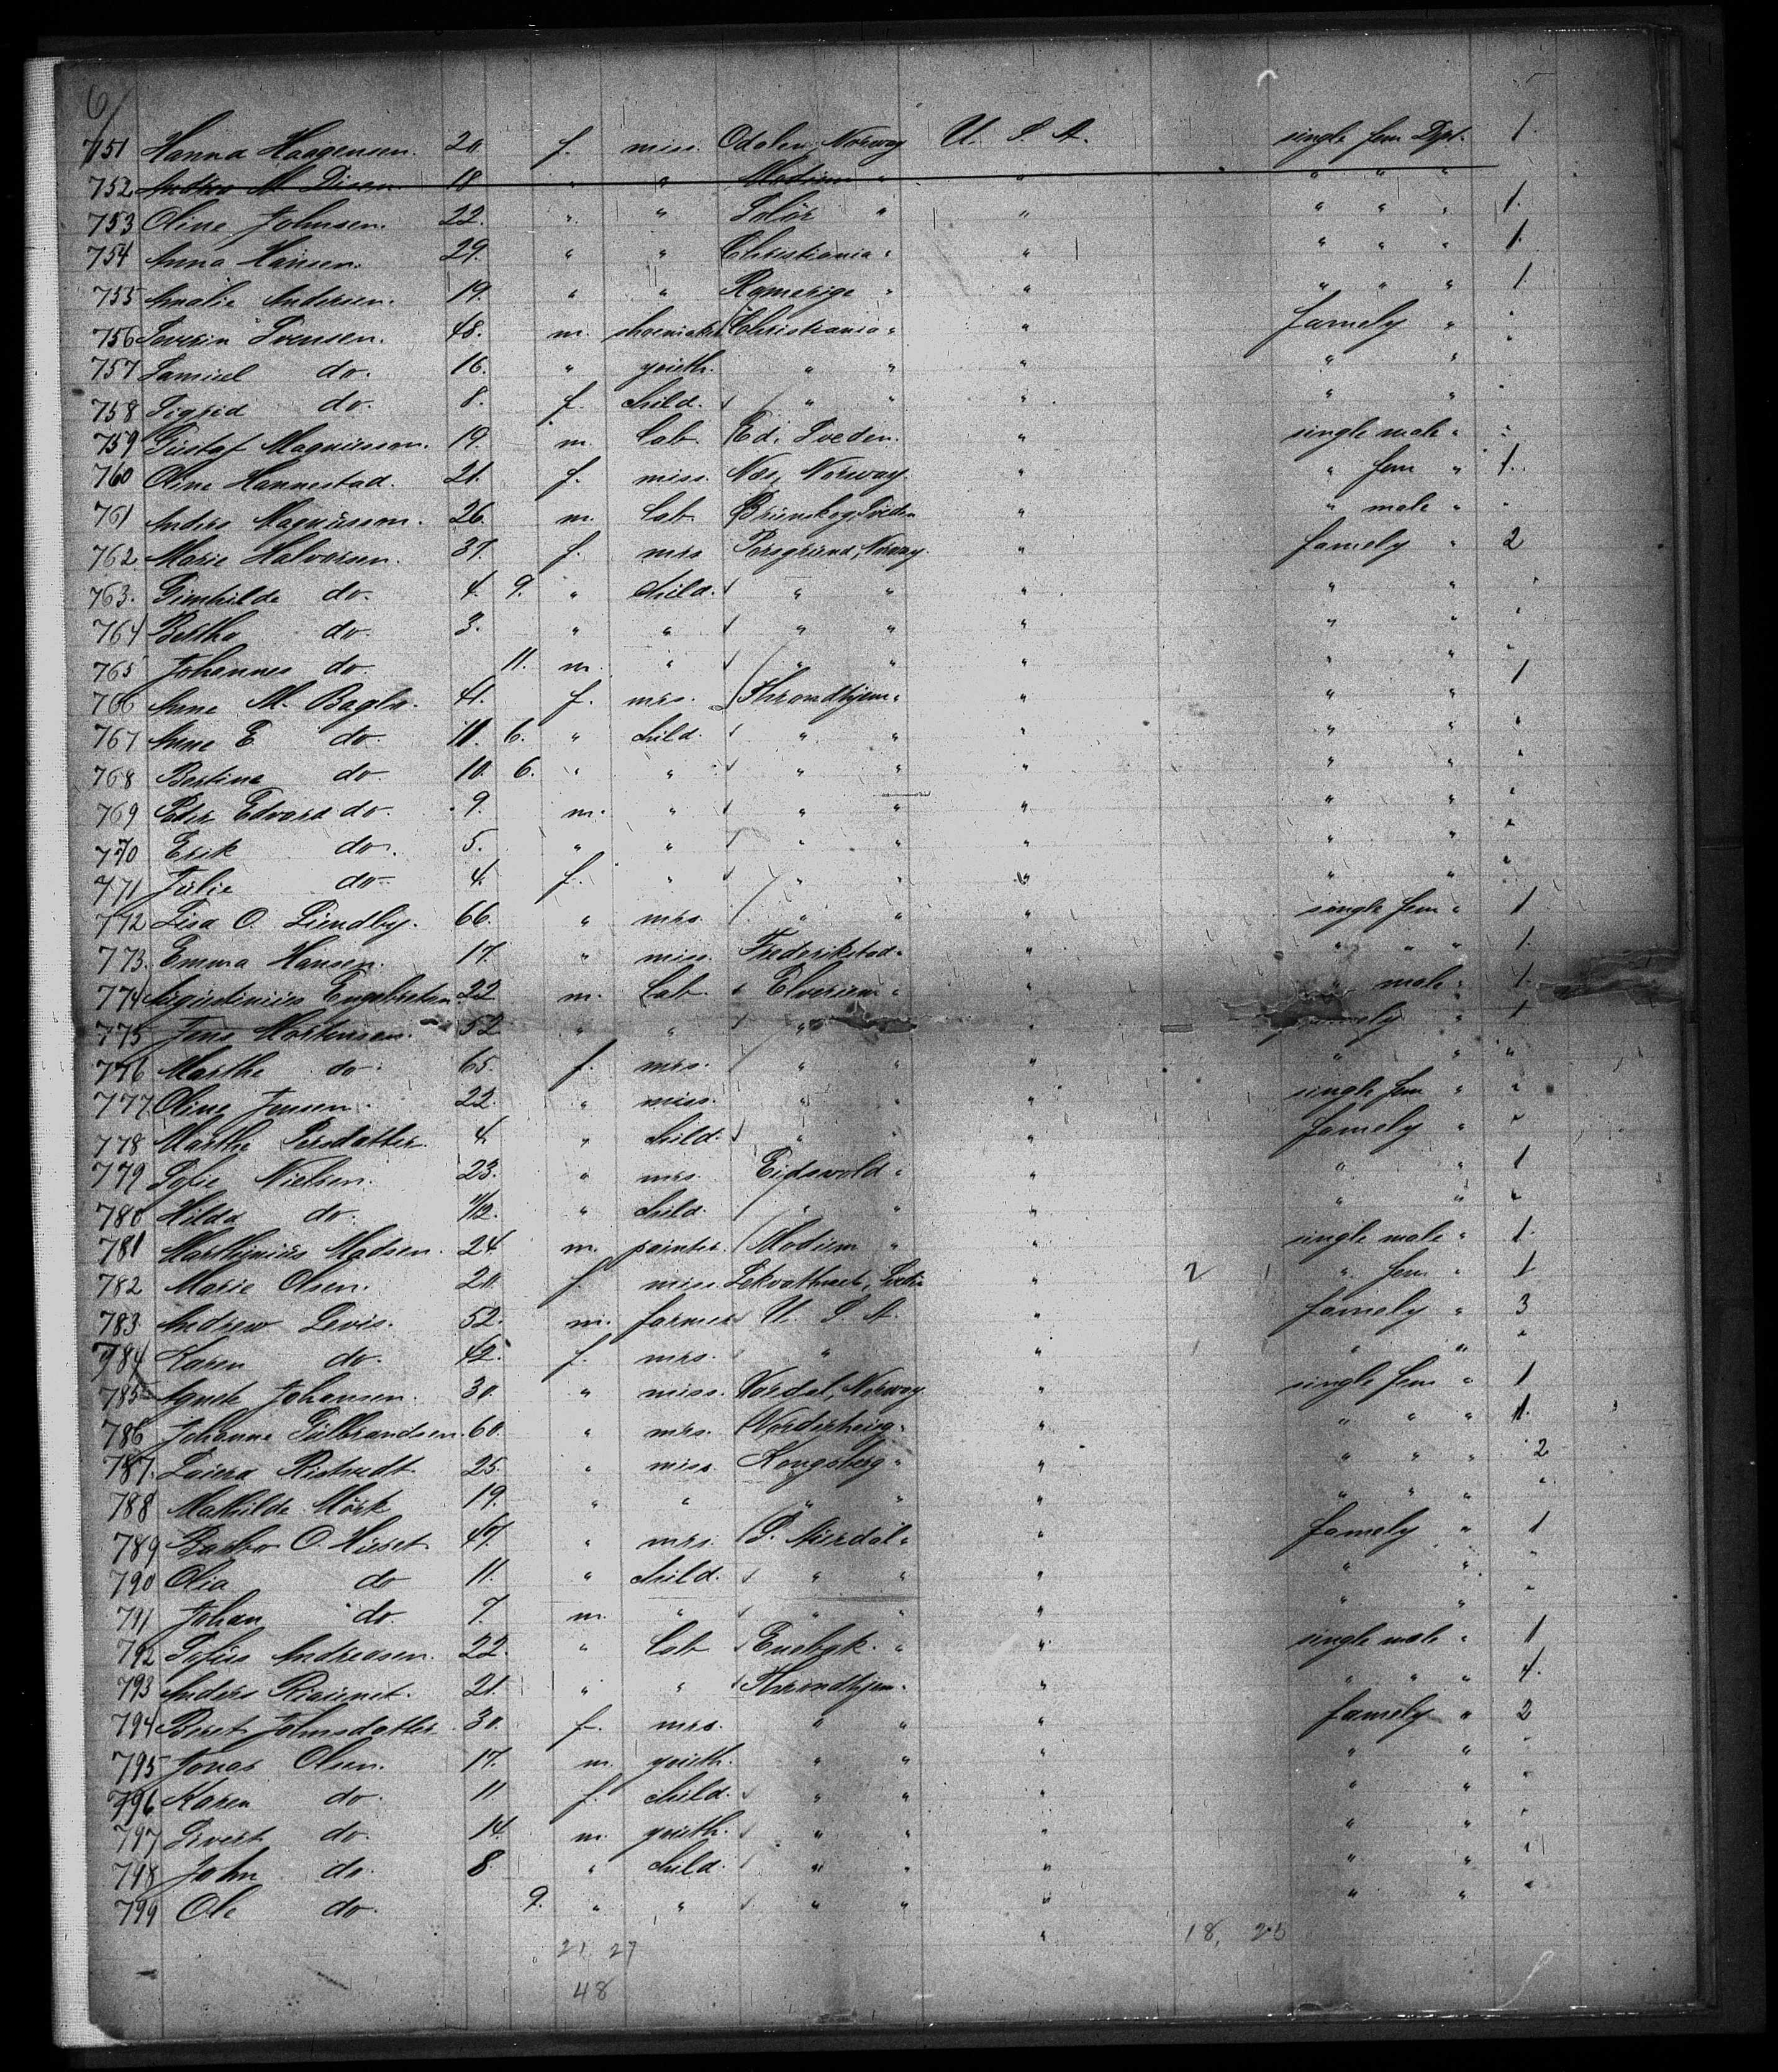 6
751 Hanna Haagensen. 20. f. miss. Odalen, Norway U. S. A. single fem Dpt. 1.
752 M. Disen 18 " " Modum " " " " "
753 Oline Johnsen. 22. " " Solör " " " " " 1.
754 Anna Hansen. 29. " " Christiania " " " " " 1.
755 Amalie Andersen. 19. " " Romerige " " " " " 1
756 Severin Svensen. 48. m. shoemaker Christiania " " famely " "
757 Samuel do. 16. " youth. " " " " " "
758 Sigrid do. 8. f. child. " " " " " "
759 Gustaf Magnusson. 19. m. Lab. Ed, Sveden. " single male " "
760 Oline Hannestad. 21. f. miss. Nes, Norway. " " fem " 1.
761 Anders Magnusson. 26. m. Lab. Brunskog Sveden " " male " "
762 Marie Halvorsen. 37. f. mrs Porsgrund, Norway. " famely " 2
763. Gunhilde do. 4. 9. " child. " " " " " "
764 Bertha do. 3. " " " " " " " "
765 Johannes do. 11. m. " " " " " " "
766 Anne M. Baglo. 41. f. mrs. Throndhjem " " " " 1
767 Anne E do. 11. 6. " child. " " " " " "
768 Bertine do. 10. 6. " " " " " " " "
769 Peder Edvard do. 9. m. " " " " " " "
770 Erik do. 5. " " " " " " " "
771 Julie do. 4. f. " " " " " " "
772 Lisa O. Sundby. 66. " mrs. " " " single fem " 1
773. Emma Hansen. 17. " miss. Frederikstad " " " " " 1.
774 Augustinius Engebretsen 22 m. Lab. Elverum " " " male " 1.
775 Jens Mortensen. 52 " " " " famely " 1
776 Marthe do. 65. f. mrs. " " " " " "
777. Oline Jensen. 22. " miss. " " " single fem " "
778 Marthe Persdatter. 4. " child. " " " famely " "
779 Sofie Nielsen. 23. " mrs. Eidsvold " " " " 1
780 Hilda do. 1/12. " child. " " " " " "
781 Marthinius Madsen. 24 m. painter. Modum " " single male " 1.
782 Marie Olsen. 21. f. miss. Lekvattnet, " 2 " fem " 1
783. Andrew Levis. 52. m. farmer U. S. A. " famely " 3
784 Karen do. 42. f. mrs. " " " " "
785 Agnete Johansen. 30. " miss. Norway " single fem " 1
786 Johanne Gulbrandsen. 60. " mrs. Norderhoug " " " " " 1.
787. Laura 25. " miss. Kongsberg " " " " " 2
788 Mathilde Mörk 19. " " " " " " " " "
789 O. Huset. 47. " mrs. " " famely " 1
790 Olia do 11. " child. " " " " " "
791 Johan do. 7. m. " " " " " " "
792 Sofus Andreasen. 22. " Lab Enebak. " " single male " 1
793 Anders 21. " " Throndhjem " " " " " 4.
794 Beret Johnsdatter. 30. f. mrs. " " " famely " 2
795 Jonas Olsen. 17. m. youth. " " " " " "
796 Karen do. 11 f. child. " " " " " "
797 Sivert do. 14. m. youth. " " " " " "
798 John do. 8. " child. " " " " " "
799 Ole do. 9. " " " " " " " "
"
21, 27 18,
48